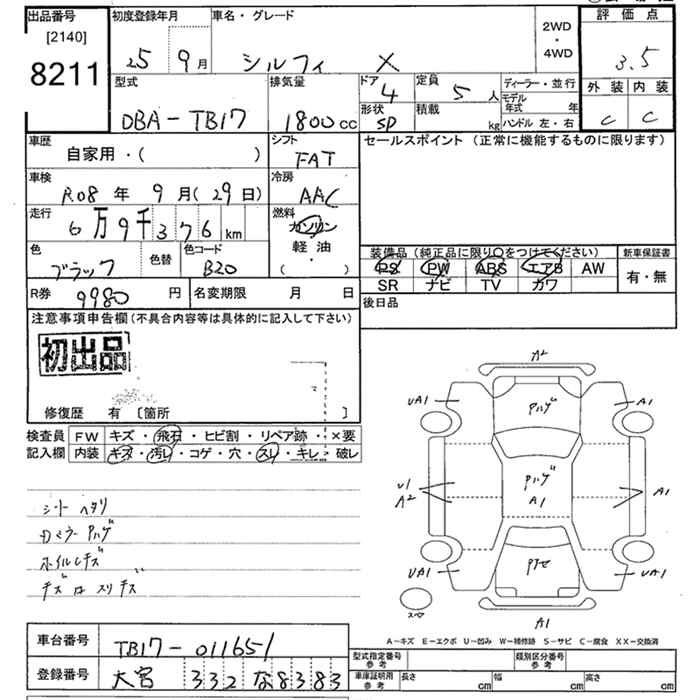 出品番号
[2140]
8211
初度登録年月
25 9月
車名・グレード
シルフィ X
2WD
・
4WD
評価点
3.5
外装 内装
C C
型式
DBA-TB17
排気量
1800cc
ドア
4
形状
SD
定員
5人
積載
kg
ディーラー・並行
モデル年式 年
ハンドル 左・右
車歴
自家用・( )
シフト
FAT
車検
R08年 9月(29日)
冷房
AAC
走行
6万9千376km
燃料
ガソリン
軽油
・( )
色
ブラック
色替
色コード
B20
R券
9980円
名変期限 月 日
セールスポイント (正常に機能するものに限ります)
装備品 (純正品に限り○をつけてください)
PS PW ABS エアB AW
SR ナビ TV カワ
新車保証書
有・無
後日品
注意事項申告欄 (不具合内容等は具体的に記入して下さい)
初出品
修復歴 有 [箇所 ]
検査員
記入欄
FW キズ・飛石・ヒビ割・リペア跡・×要
内装 キズ・汚レ・コゲ・穴・スレ・キレ・破レ
シートヘタリ
ドミラーPハゲ
ホイルキズ
キズ スリキズ
A2
UA1
A1
Pハゲ
U1
A2
Pハゲ
A1
A1
UA1
UA1
A1
スペ
A-キズ E-エクボ U-凹み W-補修跡 S-サビ C-腐食 XX-交換済
車台番号
TB17-011651
登録番号
大宮 332 な 8383
型式指定番号
参考
類別区分番号
参考
車庫証明用
参考
長さ cm
幅 cm
高さ cm